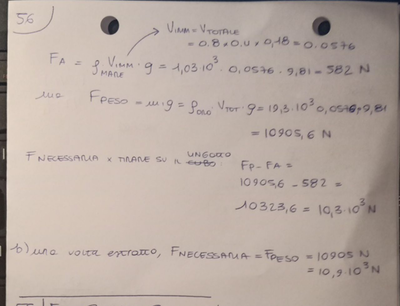 56
VIMM = VTOTALE
= 0.8 x 0.4 x 0,18 = 0.0576
FA = ρMARE VIMM · g = 1,03·10³ · 0,0576 · 9,81 = 582 N
ma FPESO = m·g = ρORO · VTOT · g = 19,3·10³ 0,0576·9,81
= 10905,6 N
FNECESSARIA x TIRARE SU IL LINGOTTO FP - FA =
10905,6 - 582 =
10323,6 = 10,3·10³ N
b) una volta estratto, FNECESSARIA = FPESO = 10905 N
= 10,9·10³ N